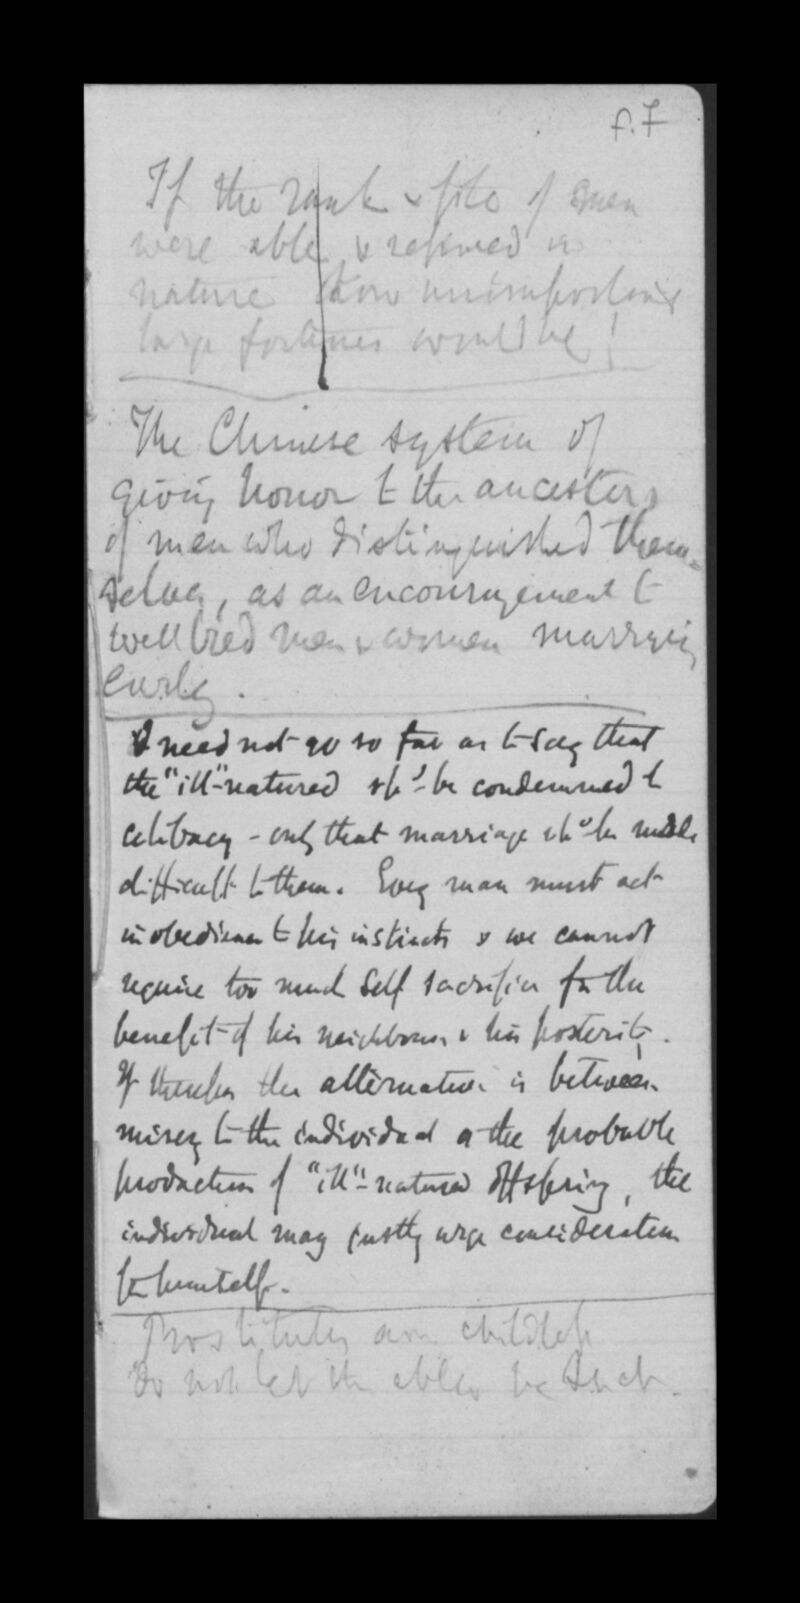 f. 7
If the rank & file of men
were able & refined in
nature how unimportant
large fortunes would be!
The Chinese system of
giving honor to the ancestors
of men who distinguished them-
selves, as an encouragement to
well bred men & women marrying
early.
I need not go so far as to say that
the "ill"-natured shd be condemned to
celibacy - only that marriage shd be made
difficult to them. Every man must act
in obedience to his instincts & we cannot
require too much self sacrifice for the
benefit of his neighbours & his posterity.
If therefore the alternative is between
misery to the individual or the probable
production of "ill"-natured offspring, the
individual may justly urge consideration
for himself.
Prostitutes are childless
Do not let the ables be such.